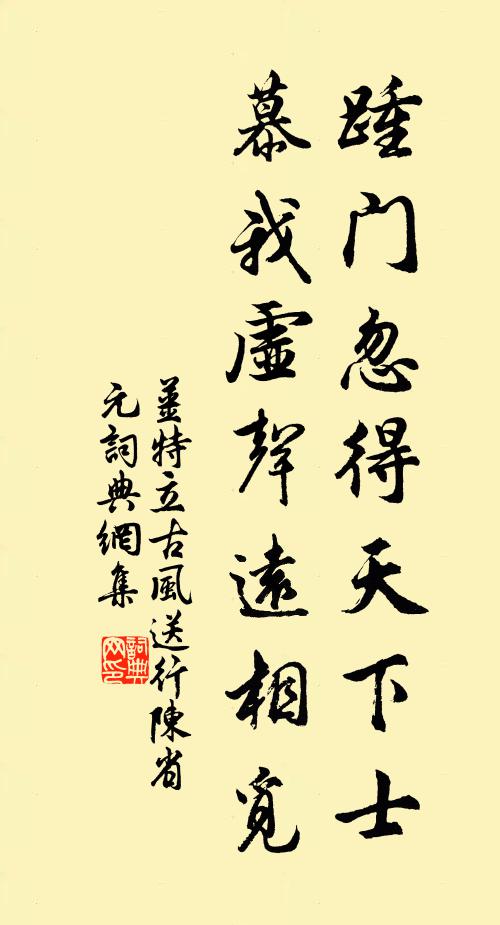 踵门忽得天下士
慕我虛聲遠相覓
薑特立古風送行陳省
元詞典網集
詞典
网印